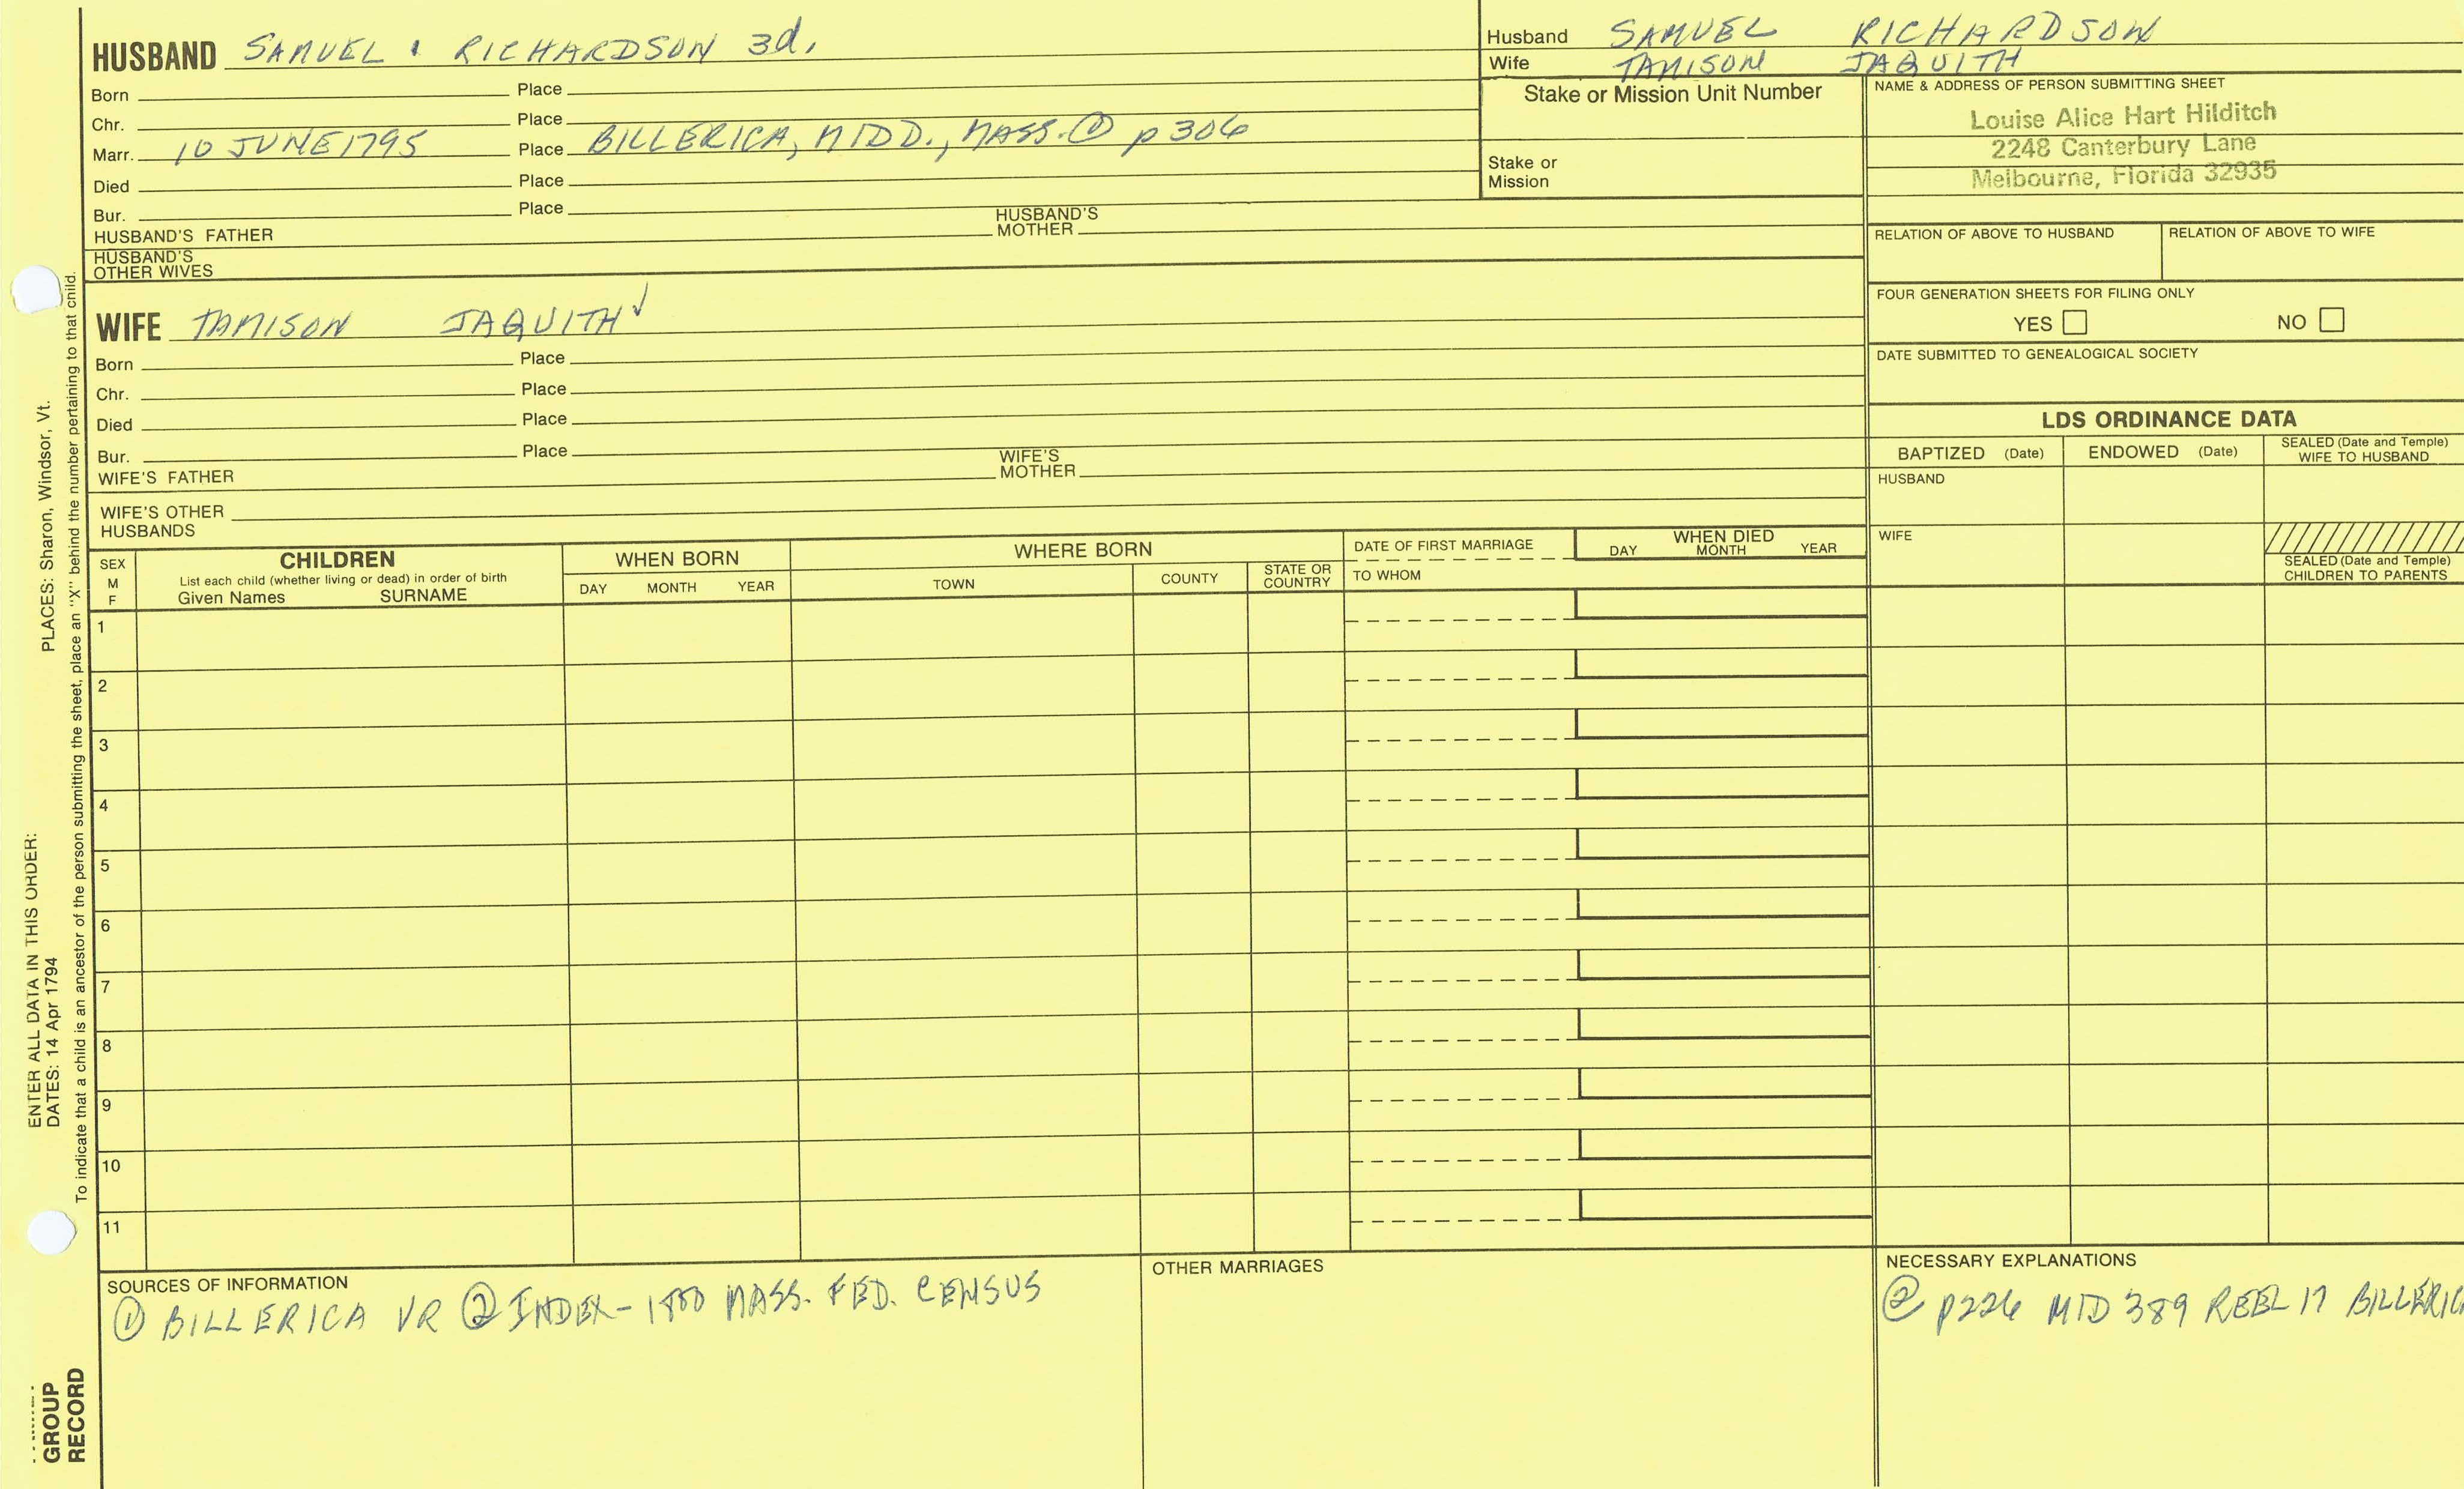 HUSBAND SAMUEL RICHARDSON 3d.
Born Place
Chr. Place
Marr. 10 JUNE 1795 Place BILLERICA, MIDD., MASS. ① p 306
Died Place
Bur. Place
HUSBAND'S FATHER HUSBAND'S MOTHER
HUSBAND'S OTHER WIVES
Husband SAMUEL RICHARDSON
Wife TAMISON JAQUITH
Stake or Mission Unit Number
Stake or Mission
NAME & ADDRESS OF PERSON SUBMITTING SHEET
Louise Alice Hart Hilditch
2248 Canterbury Lane
Melbourne, Florida 32935
RELATION OF ABOVE TO HUSBAND RELATION OF ABOVE TO WIFE
FOUR GENERATION SHEETS FOR FILING ONLY
YES NO
DATE SUBMITTED TO GENEALOGICAL SOCIETY
WIFE TAMISON JAQUITH ✓
Born Place
Chr. Place
Died Place
Bur. Place
WIFE'S FATHER WIFE'S MOTHER
WIFE'S OTHER HUSBANDS
LDS ORDINANCE DATA
BAPTIZED (Date) ENDOWED (Date) SEALED (Date and Temple) WIFE TO HUSBAND
HUSBAND
WIFE
SEALED (Date and Temple) CHILDREN TO PARENTS
SEX M F
CHILDREN
List each child (whether living or dead) in order of birth
Given Names SURNAME
WHEN BORN
DAY MONTH YEAR
WHERE BORN
TOWN COUNTY STATE OR COUNTRY
DATE OF FIRST MARRIAGE
TO WHOM
WHEN DIED
DAY MONTH YEAR
1
2
3
4
5
6
7
8
9
10
11
SOURCES OF INFORMATION
① BILLERICA VR ② INDEX-1800 MASS. FED. CENSUS
OTHER MARRIAGES
NECESSARY EXPLANATIONS
② p226 MID 389 REEL 17 BILLERIC
ENTER ALL DATA IN THIS ORDER:
DATES: 14 Apr 1794 PLACES: Sharon, Windsor, Vt.
To indicate that a child is an ancestor of the person submitting the sheet, place an "X" behind the number pertaining to that child.
GROUP
RECORD